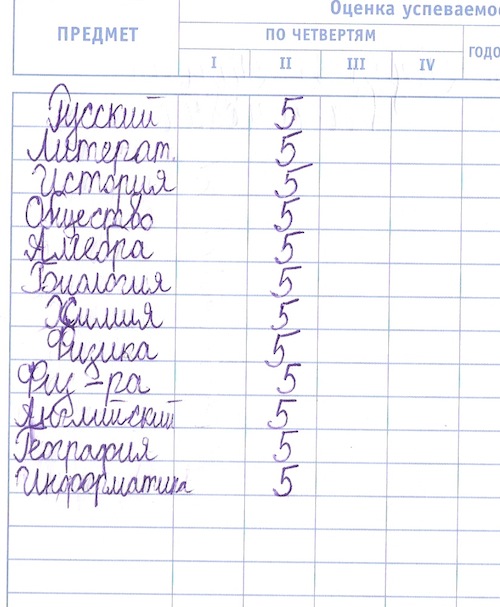 Оценка успеваемос
ПРЕДМЕТ
ПО ЧЕТВЕРТЯМ
ГОДО
I II III IV
Русский 5
Литерат. 5
История 5
Общество 5
Алгебра 5
Биология 5
Химия 5
Физика 5
Физ-ра 5
Английский 5
География 5
Информатика 5